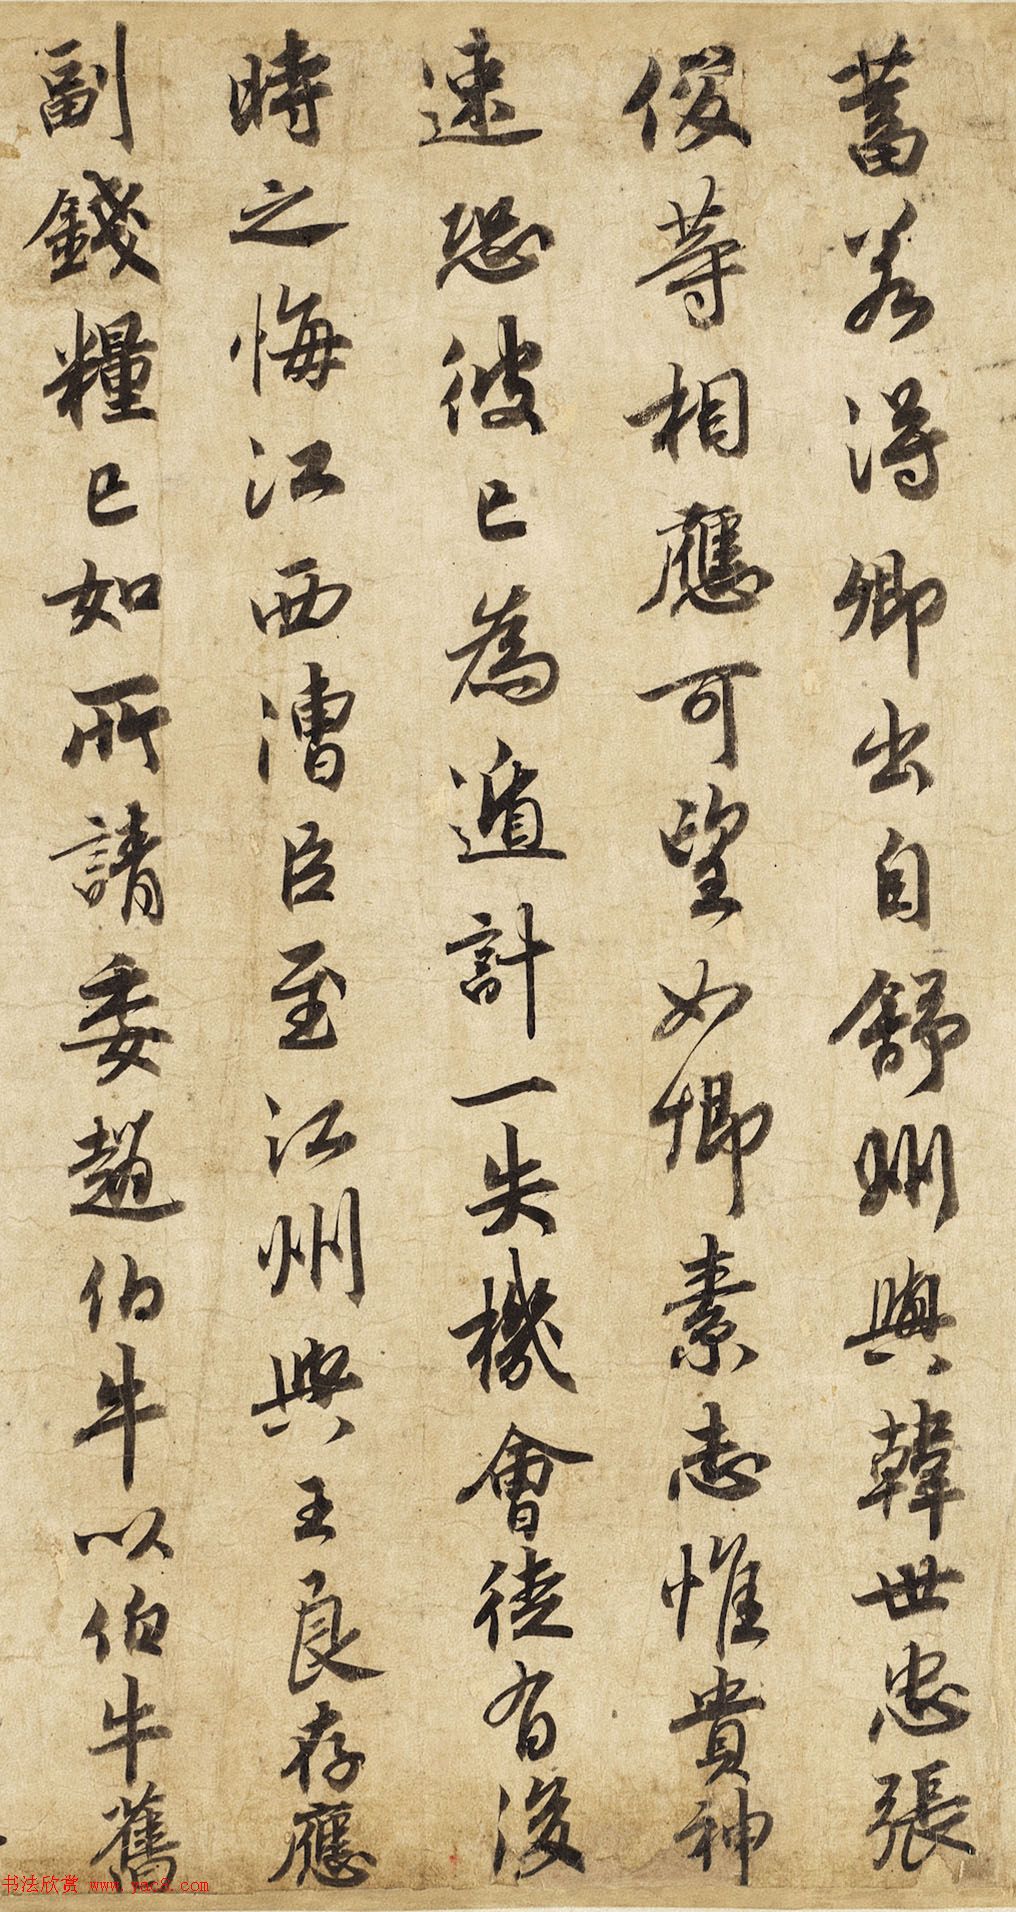 蓄若得卿出自舒州與韓世忠張
俊等相應可望如卿素志惟貴神
速恐彼已為遁計一失機會徒有後
時之悔江西漕臣至江州與王良存應
副錢糧已如所請委趙伯牛以伯牛舊
书法欣赏 www.yac8.com